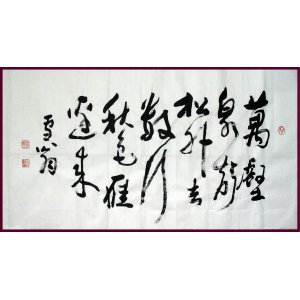 萬壑
泉聲
松外去
數行
秋色雁
邊來
雪翁